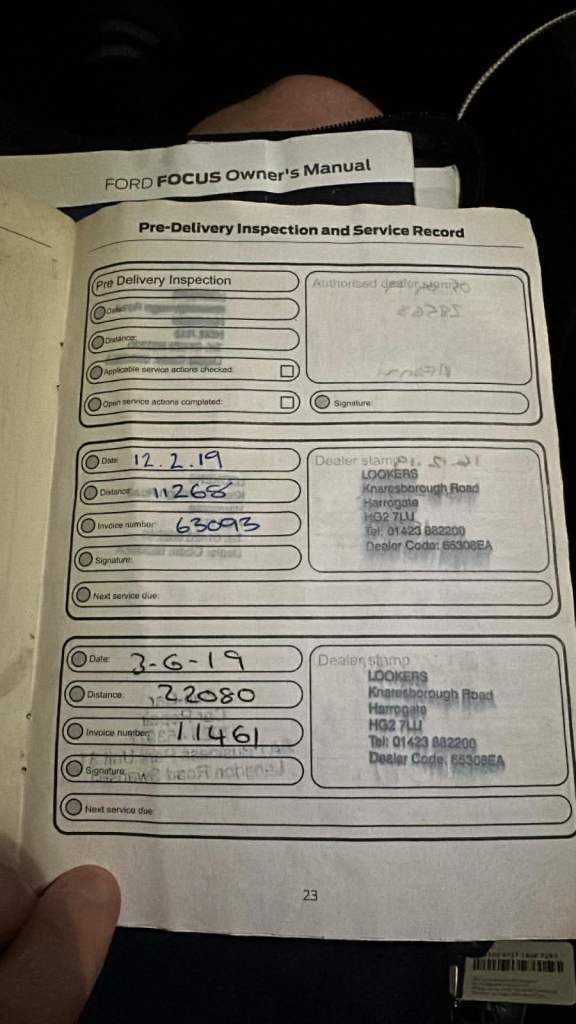 FORD FOCUS Owner's Manual
Pre-Delivery Inspection and Service Record
Pre Delivery Inspection
Authorised dealer stamp
Date:
Distance:
Applicable service actions checked:
Open service actions completed:
Signature:
Date: 12.2.19
Distance: 11268
Invoice number: 63093
Signature:
Next service due:
Dealer stamp
LOOKERS
Knaresborough Road
Harrogate
HG2 7LU
Tel: 01423 882200
Dealer Code: 65308EA
Date: 3-6-19
Distance: 22080
Invoice number: 11461
Signature:
Next service due:
Dealer stamp
LOOKERS
Knaresborough Road
Harrogate
HG2 7LU
Tel: 01423 882200
Dealer Code: 65308EA
23